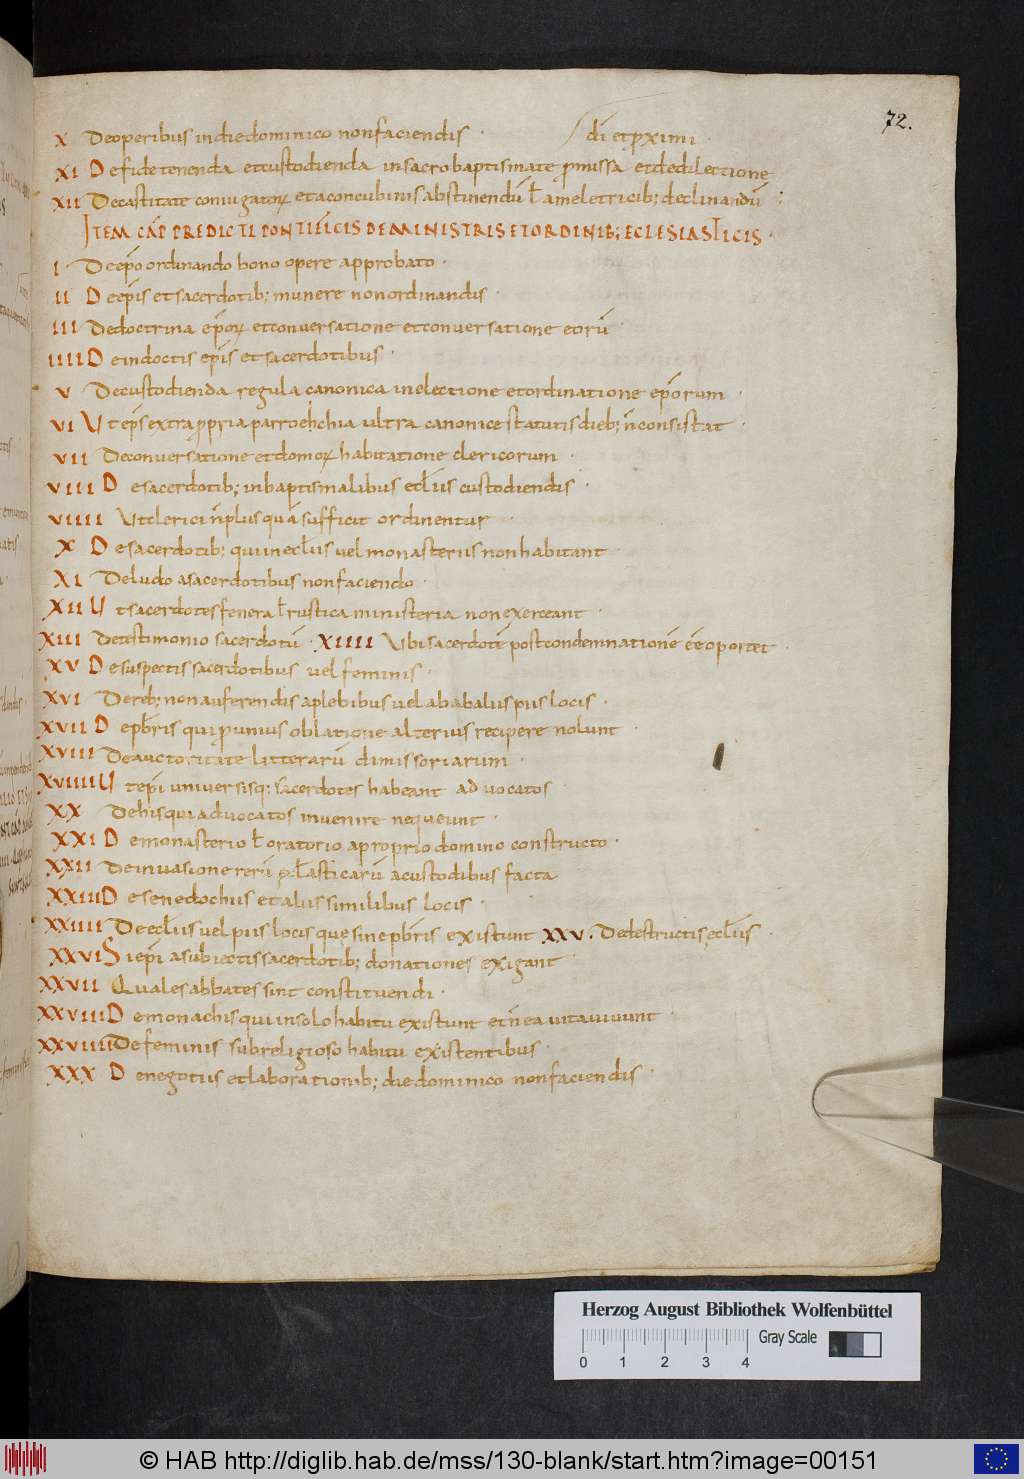 72.
X Deoperibus indiedominico nonfaciendis · di et ꝓximi ·
XI Defidetenenda etcustodienda insacrobaptismate p̄missa etdedilectione
XII Decastitate coniugatoꝝ etaconcubinis abstinendū ł ameletricib; declinandū :
ITEM CAP̄ PREDICTI PONTIFICIS DEMINISTRIS ETORDINIB; ECLESIASTICIS ·
I · Deep̄o ordinando bono opere approbato ·
II Deep̄is etsacerdotib; munere nonordinandis ·
III Dedoctrina ep̄oꝝ etconversatione etconversatione eorū ·
IIII Deindoctis ep̄is etsacerdotibus ·
V Decustodienda regula canonica inelectione etordinatione ep̄orum ·
VI Utep̄s extra ꝓpria parroehchia ultra canonice statutis dieb; n̄ consistat ·
VII Deconversatione etdomoꝝ habitatione clericorum ·
VIII Desacerdotib; inbaptismalibus ecl̄iis custodiendis ·
VIIII Utclerici n̄ plus quā sufficit ordinentur ·
X Desacerdotib; quiinecl̄iis vel monasteriis nonhabitant ·
XI Deludo asacerdotibus nonfaciendo ·
XII Utsacerdotes fenera ł rustica ministeria nonexerceant ·
XIII Detestimonio sacerdotū · XIIII Ubisacerdotē postcondemnationē eē oportet ·
XV Desuspectis sacerdotibus vel feminis ·
XVI Dereb; nonauferendis aplebibus vel ab abaliis piis locis ·
XVII Depb̄ris qui ꝓ unius oblatione alterius recipere nolunt ·
XVIII Deauctoritate litterarū dimissoriarum ·
XVIIII Utep̄i universisq; sacerdotes habeant advocatos ·
XX Dehis qui advocatos invenire nequeunt ·
XXI Demonasterio ł oratorio aproprio domino constructo ·
XXII Deinvasione rerū ecl̄asticarū acustodibus facta
XXIII Desenedochiis etaliis similibus locis ·
XXIIII Deecl̄iis vel piis locis quę sine pb̄ris existunt XXV · Dedestructis ęcl̄iis ·
XXVI Siep̄i asubiectis sacerdotib; donationes exigant ·
XXVII Qualesabbates sint constituendi ·
XXVIII Demonachis qui insolo habitu existunt et n̄ ea vita vivunt ·
XXVIIII Defeminis subreligioso habitu existentibus ·
XXX Denegotiis etlaborationib; die dominico nonfaciendis ·
Herzog August Bibliothek Wolfenbüttel
0 1 2 3 4 Gray Scale
© HAB http://diglib.hab.de/mss/130-blank/start.htm?image=00151